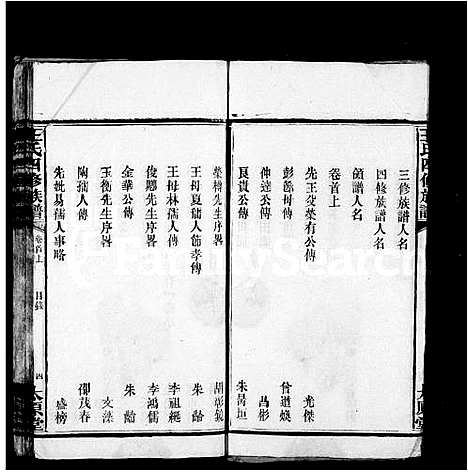 王氏四修族譜
三修族譜人名
四修族譜人名
領譜人名
卷首上
先王父榮有公傳 光傑
彭孫母傳 曾道煥
仲達公傳 昌彬
良貴公傳 朱昺垣
榮樽先生序畧
王母夏孺人節孝傳 朱齡
王母林孺人傳 李祖綖
俊驄先生序畧 李鴻儒
金華公傳 朱齡
玉衡先生序畧 文藻
陶孺人傳 鄒茂春
先妣易孺人事略 盛榜
王氏四修族譜 卷首上 目錄 四 太原堂
FamilySearch